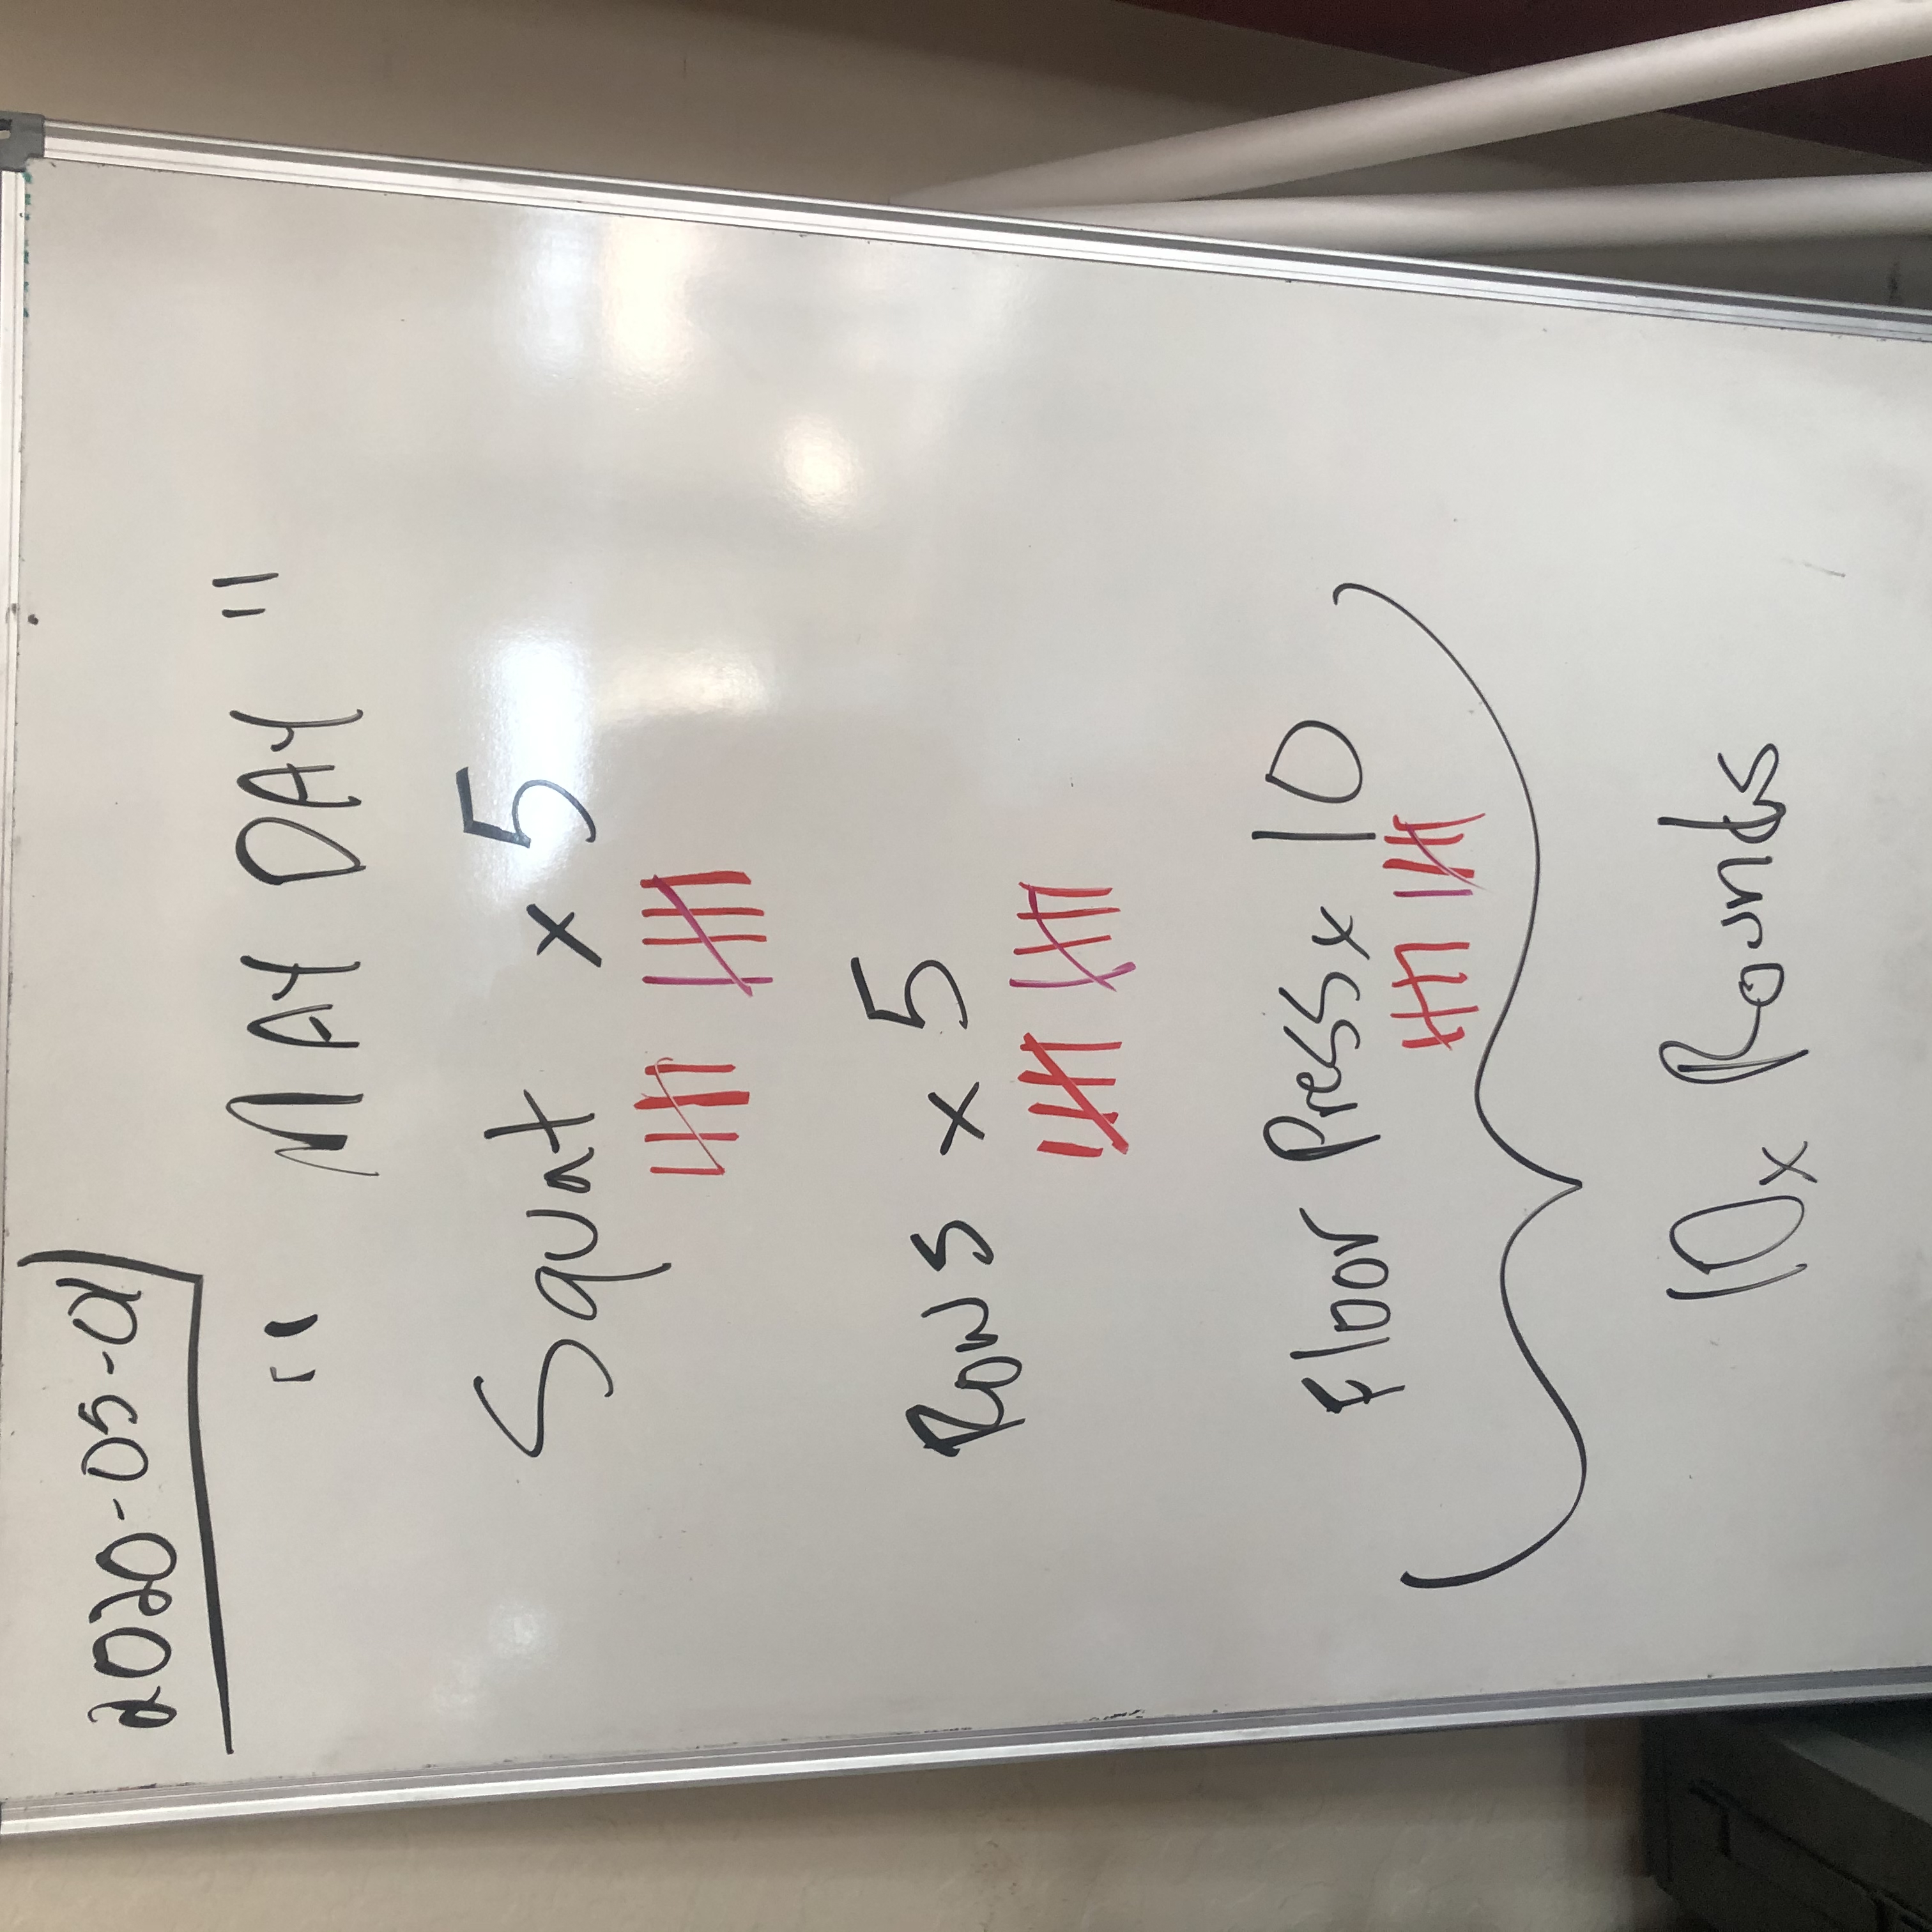 2020-05-01
"MAY DAY"
Squat x 5
Rows x 5
Floor Press x 10
10x Rounds